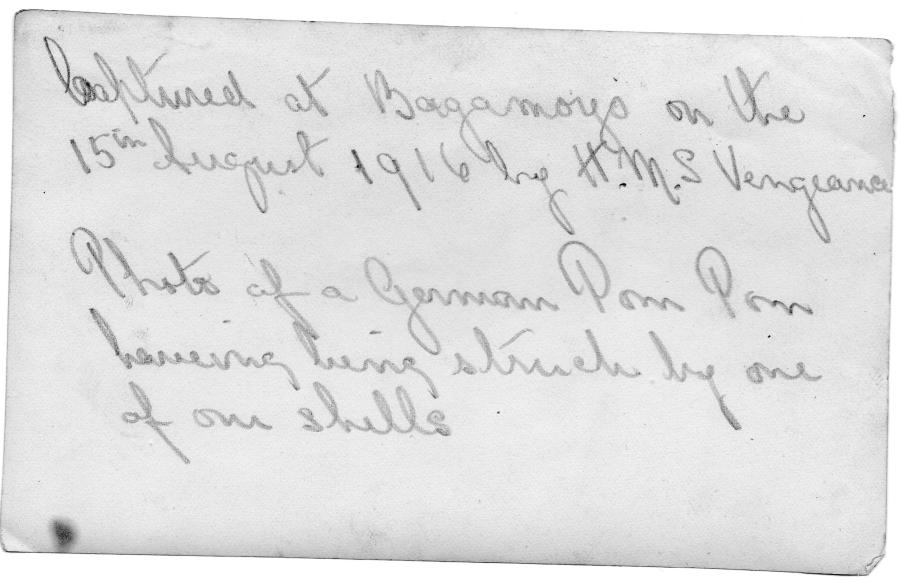 Captured at Bagamoyo on the
15th August 1916 by H.M.S Vengeance
Photo of a German Pom Pom
having being struck by one
of our shells